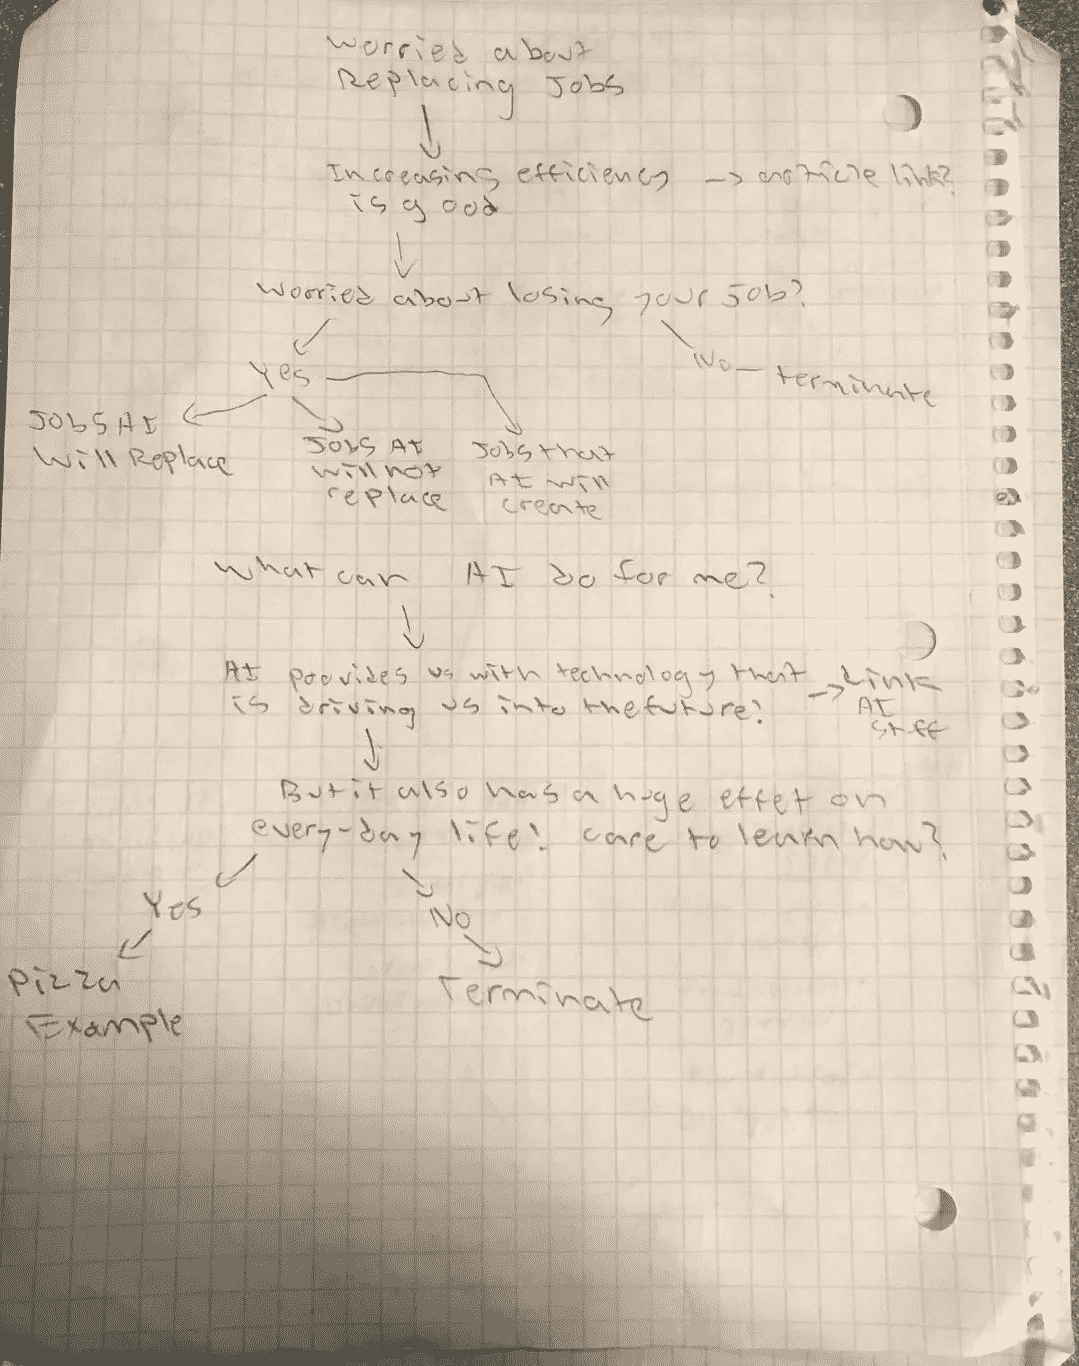 Worried about
Replacing Jobs
Increasing efficiency → article link?
is good
Worried about losing your job?
Yes
No — terminate
Jobs AI
Will Replace
Jobs AI
will not
replace
Jobs that
AI will
create
What can AI do for me?
AI provides us with technology that → Link
is driving us into the future!
AI
stff
But it also has a huge effet on
every-day life! care to learn how?
Yes
No
Pizza
Example
Terminate